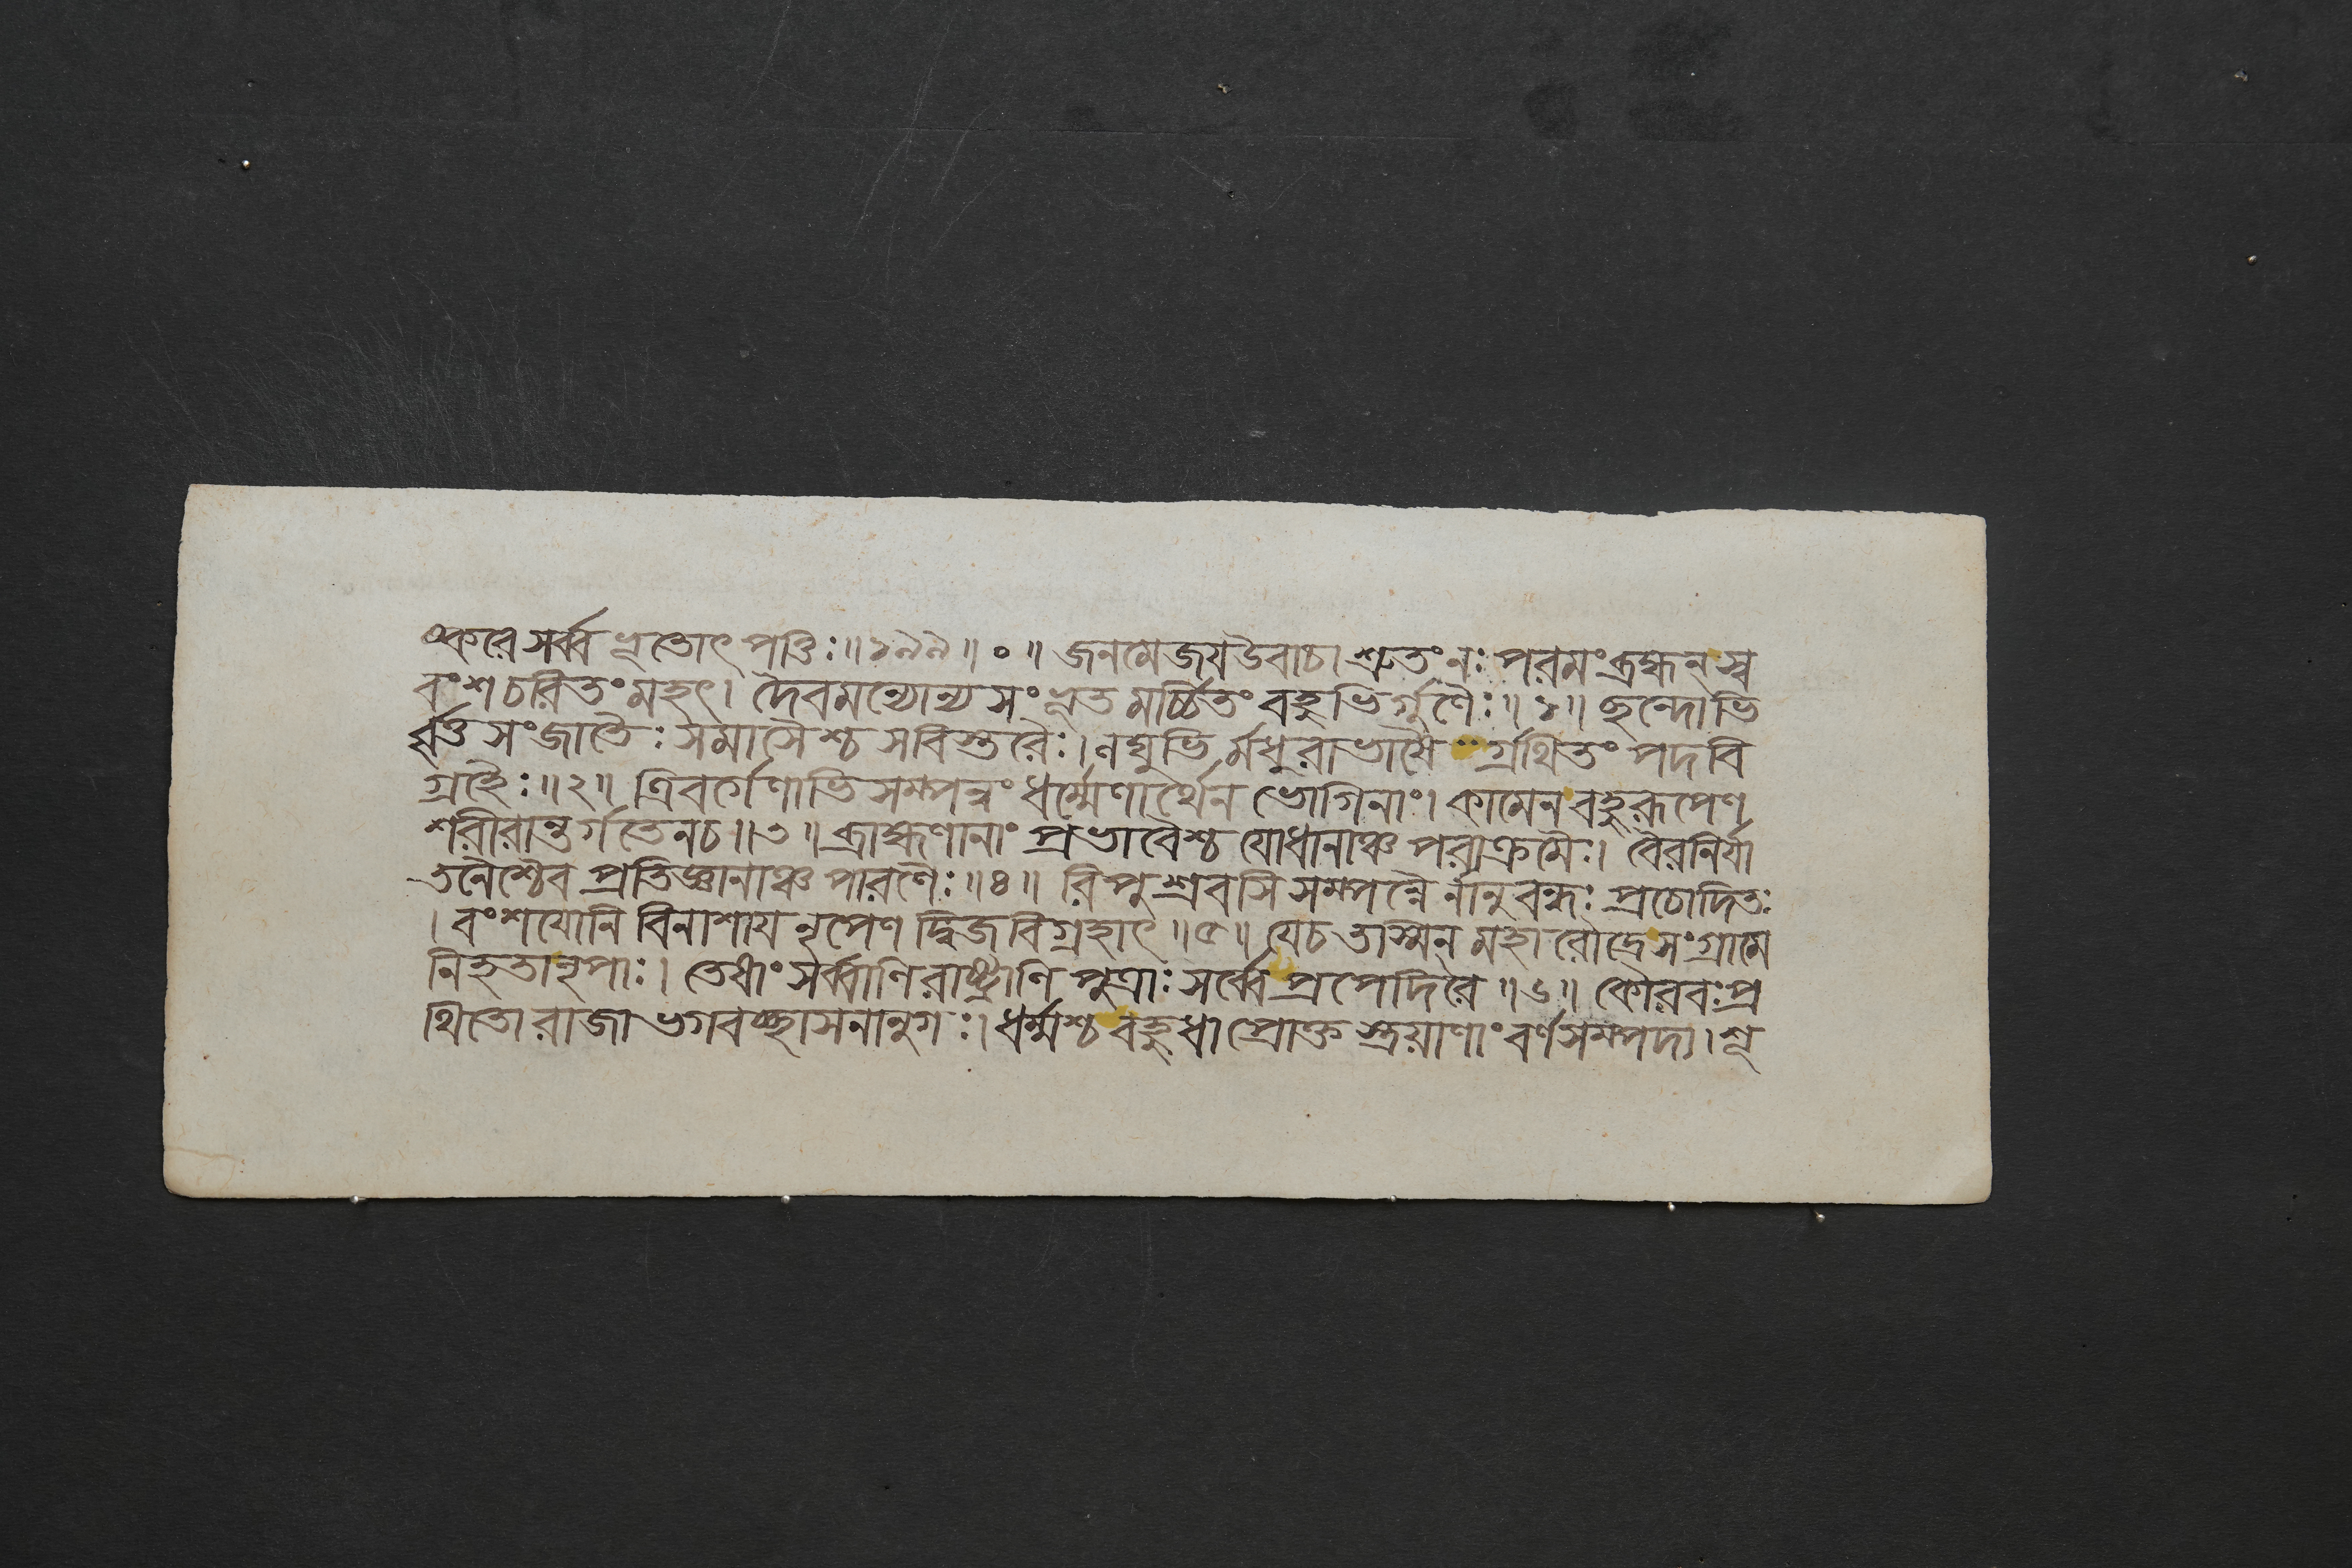 ষ্করে সর্ব্ব ভূতোৎপত্তিঃ ॥১৯৯॥ ০ ॥ জনমেজয উবাচ। শ্রুতং নঃ পরমং ব্রহ্মন্ স্ব
বংশ চরিতং মহৎ। দৈবমন্যোন্য সংভূত মর্চ্চিতং বহুভির্গুণৈঃ ॥১॥ ছন্দোভি
র্বৃত্ত সংজাতৈঃ সমাসৈশ্চ সবিস্তরৈঃ। লঘুভি র্মধুরাভাষৈ গ্রথিতং পদবি
গ্রহৈঃ ॥২॥ ত্রিবর্গেণাভিসম্পন্নং ধর্ম্মেণার্থেন ভোগিনাং। কামেন বহুরূপেণ
শরীরান্তর্গতেন চ ॥৩॥ ব্রাহ্মণানাং প্রভাবৈশ্চ যোধানাঞ্চ পরাক্রমৈঃ। বৈরনির্যা
তনৈশ্চৈব প্রতিজ্ঞানাঞ্চ পারণৈঃ ॥৪॥ রিপুশ্রবসি সম্পন্নৈ র্নানুবন্ধঃ প্রচোদিতঃ
। বংশযোনি বিনাশায নৃপেণ দ্বিজবিগ্রহাৎ ॥৫॥ যেচ তাস্মিন্ মহা রৌদ্রে সংগ্রামে
নিহতা নৃপাঃ। তেষাং সর্ব্বাণি রাষ্ট্রাণি পুত্রাঃ সর্ব্বে প্রপেদিরে ॥৬॥ কৌরবঃ প্র
থিতো রাজা ভগবচ্ছাসনানুগঃ। ধর্ম্মশ্চ বহুধা প্রোক্ত স্ত্রয়াণাং বর্ণসম্পদা। শূ